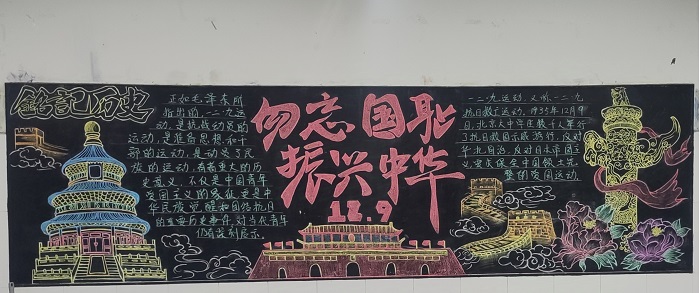 铭记历史
正如毛泽东所
指出的，一二九运
动，是抗战动员的
运动，是准备思想和干
部的运动，是动员民
族的运动，有着重大的历
史意义，不仅是中国青年
爱国主义的
华民族觉醒和
的重要历史事件，对当代青年
仍有深刻启示。
勿忘国耻
振兴中华
12.9
一二·九运动，又称一二九
抗日救亡运动，1935年12月9
日，北京大中学生数千人举行
了抗日救国示威游行，反对
华北自治，反抗日本帝国主
义要求保全中国领土完
整的爱国运动。